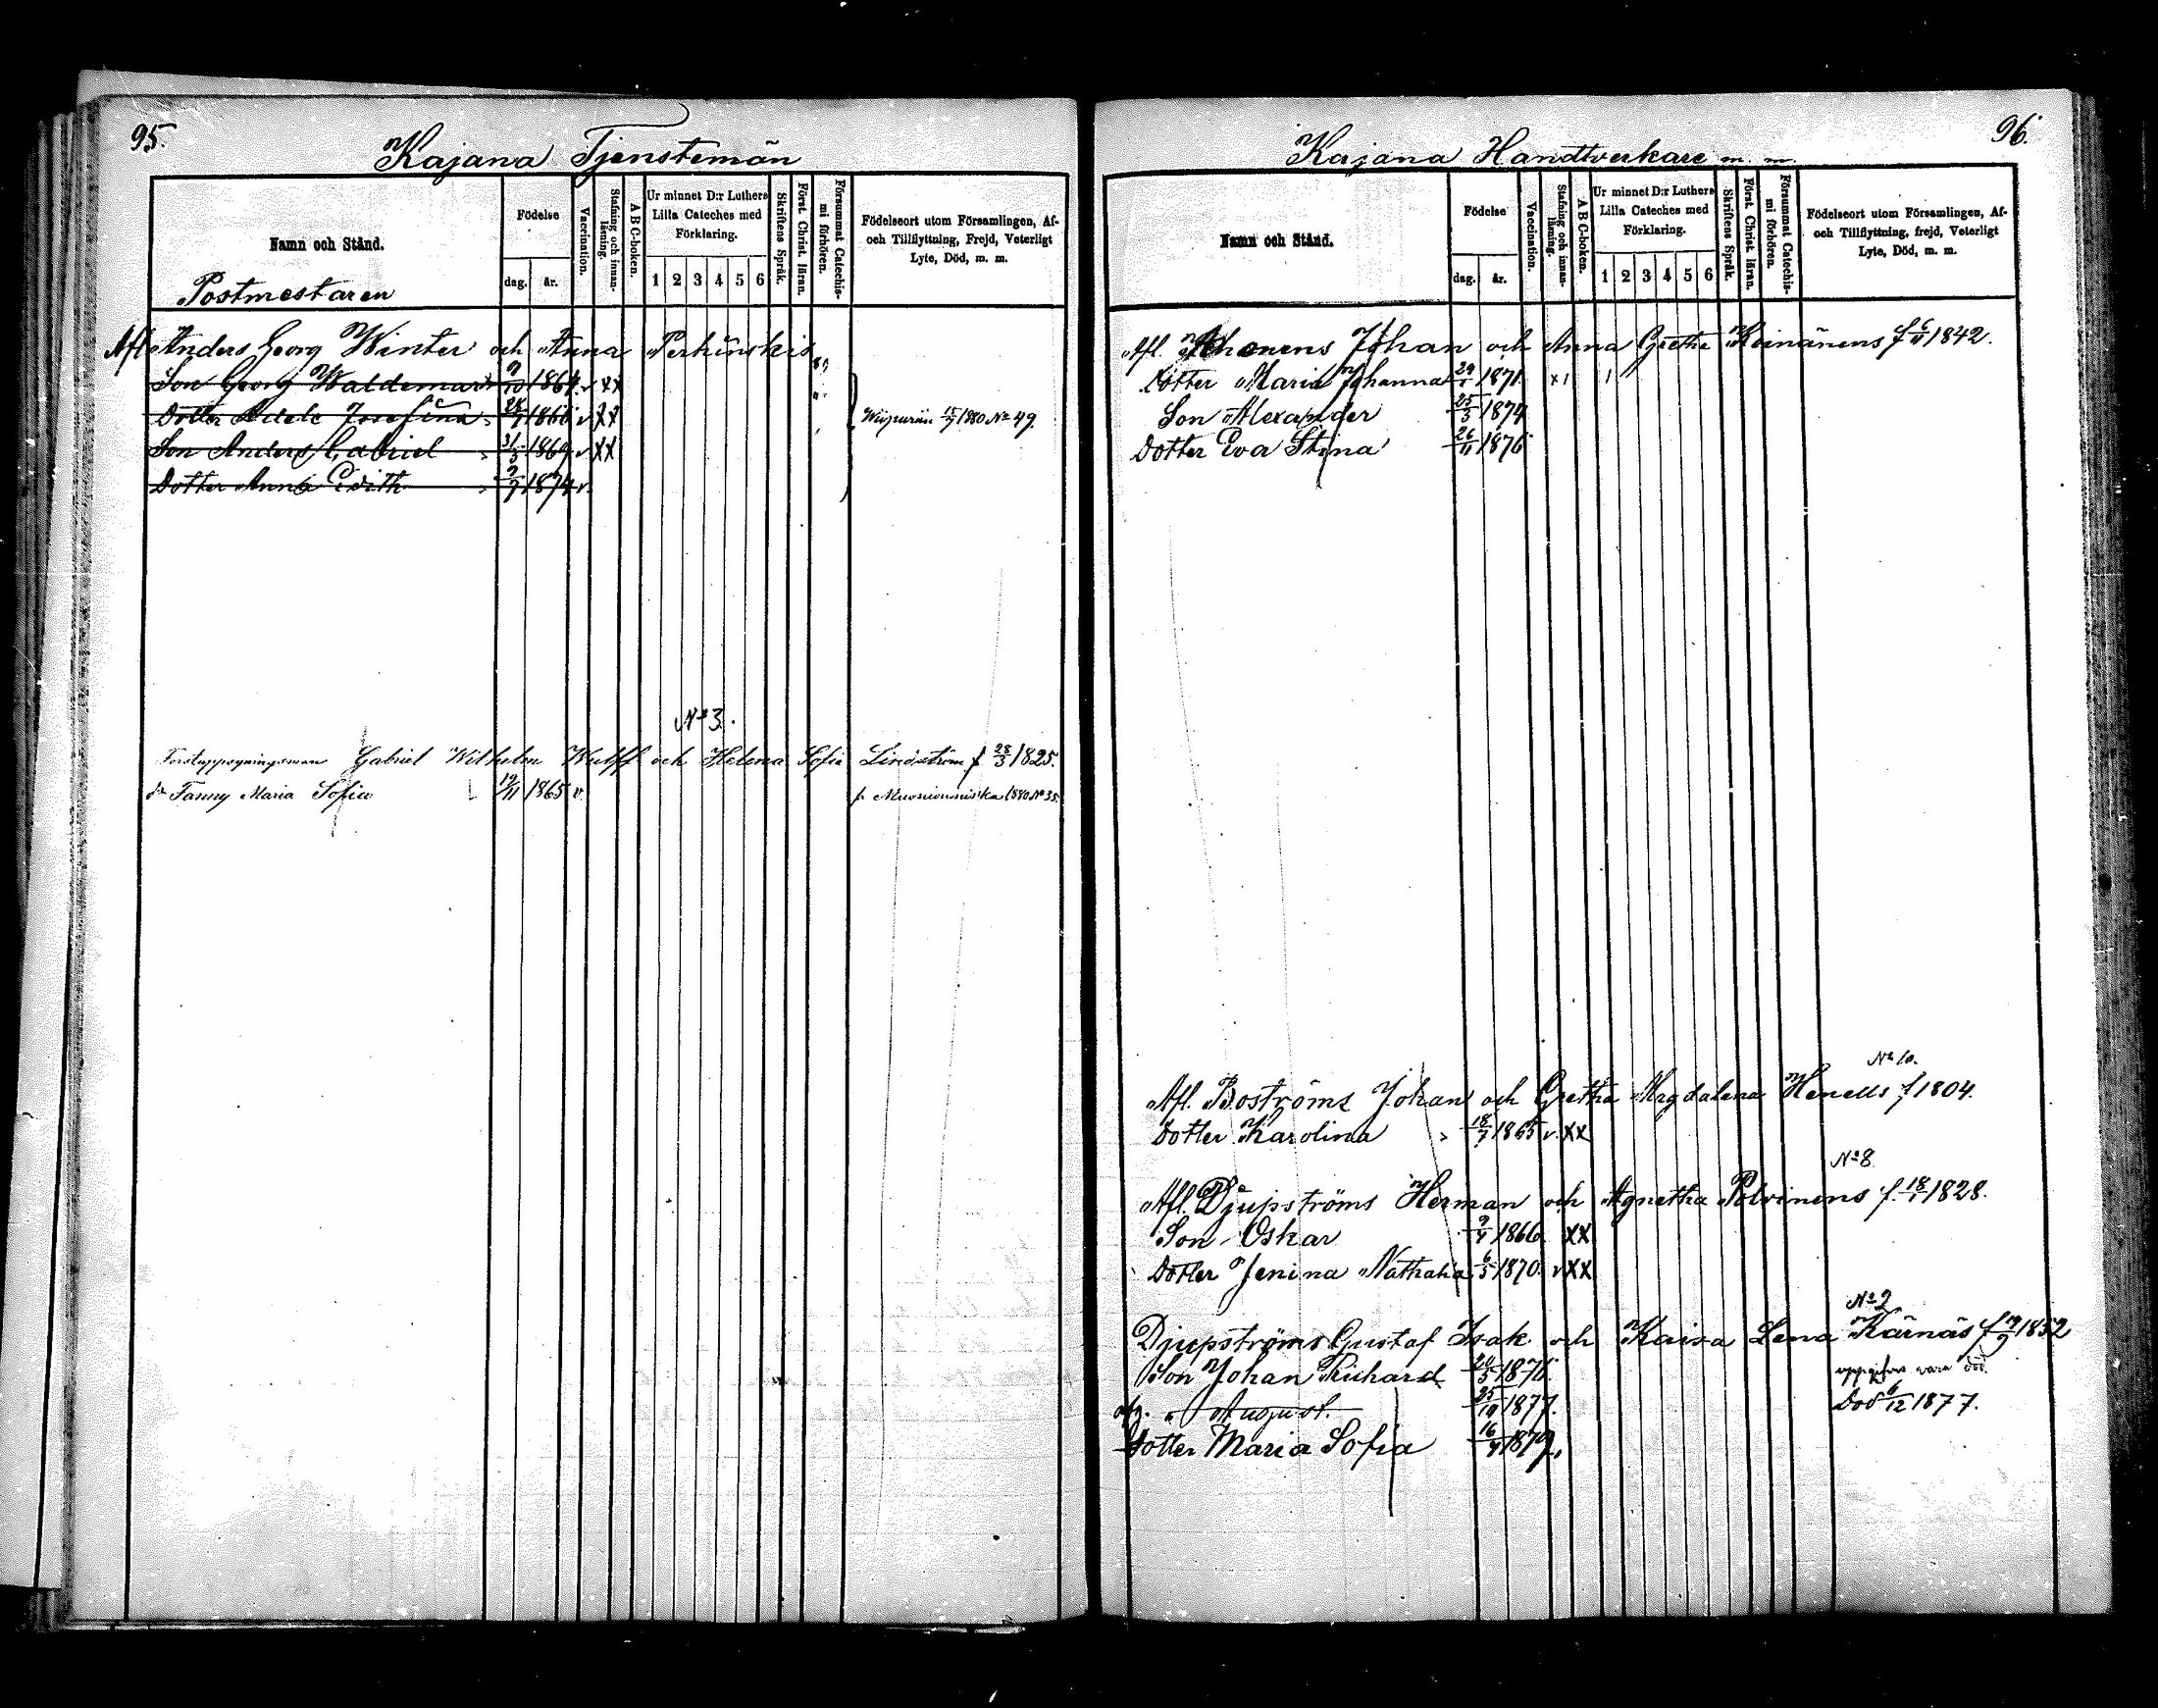 95.
Kajana Tjenstemän
Namn och Stånd.
Födelse
dag. år.
Vaccination.
Stafning och innanläsning.
A B C-boken.
Ur minnet D:r Luthers Lilla Cateches med Förklaring.
1 2 3 4 5 6
Skriftens Språk.
Först. Christ. läran.
Försummat Catechismi förhören.
Födelseort utom Församlingen, Af- och Tillflyttning, Frejd, Veterligt Lyte, Död, m. m.
Postmestaren
Afl Anders Georg Winter och Anna
Son Georg Waldemar 1864. v XX
Dotter Adele Josefina 28/7 1866 v XX Wiipuriin 15/7 1880 No 49.
Son Anders Gabriel 31/5 1869 v XX
Dotter Anna Edith 1874 v.
No 3.
Gabriel Wilhelm Wulff och Helena Sofia Lindström f 28/3 1825.
dr Fanny Maria Sofia 19/11 1865 v. fr Muonionniska 1880 No 35.
96.
Kajana Handtverkare m. m.
Namn och Stånd.
Födelse
dag. år.
Vaccination.
Stafning och innanläsning.
A B C-boken.
Ur minnet D:r Luthers Lilla Cateches med Förklaring.
1 2 3 4 5 6
Skriftens Språk.
Först. Christ. läran.
Försummat Catechismi förhören.
Födelseort utom Församlingen, Af- och Tillflyttning, frejd, Veterligt Lyte, Död, m. m.
Afl. Ahonens Johan och Anna Gretha Keinänens f 1842.
Dotter Maria Johanna 29/1 1871. x1 1
Son Alexander 25/3 1874
Dotter Eva Stina 26/11 1876
No 10.
Afl. Boströms Johan och Gretha Magdalena Henells f 1804.
Dotter Karolina 18/7 1865 v. XX
No 8.
Afl. Djupströms Herman och Agnetha Polvinens f. 18/1 1828.
Son Oskar 9/4 1866 XX
Dotter Jenina Nathalia 6/5 1870. v XX
No 2
Djupströms Gustaf Isak och Kaisa Lena Kärnäs f 19/9 1852
Son Johan Richard 20/5 1876. uppgifves vara död.
" August. 25/10 1877. Död 6/12 1877.
Dotter Maria Sofia 16/4 1879.